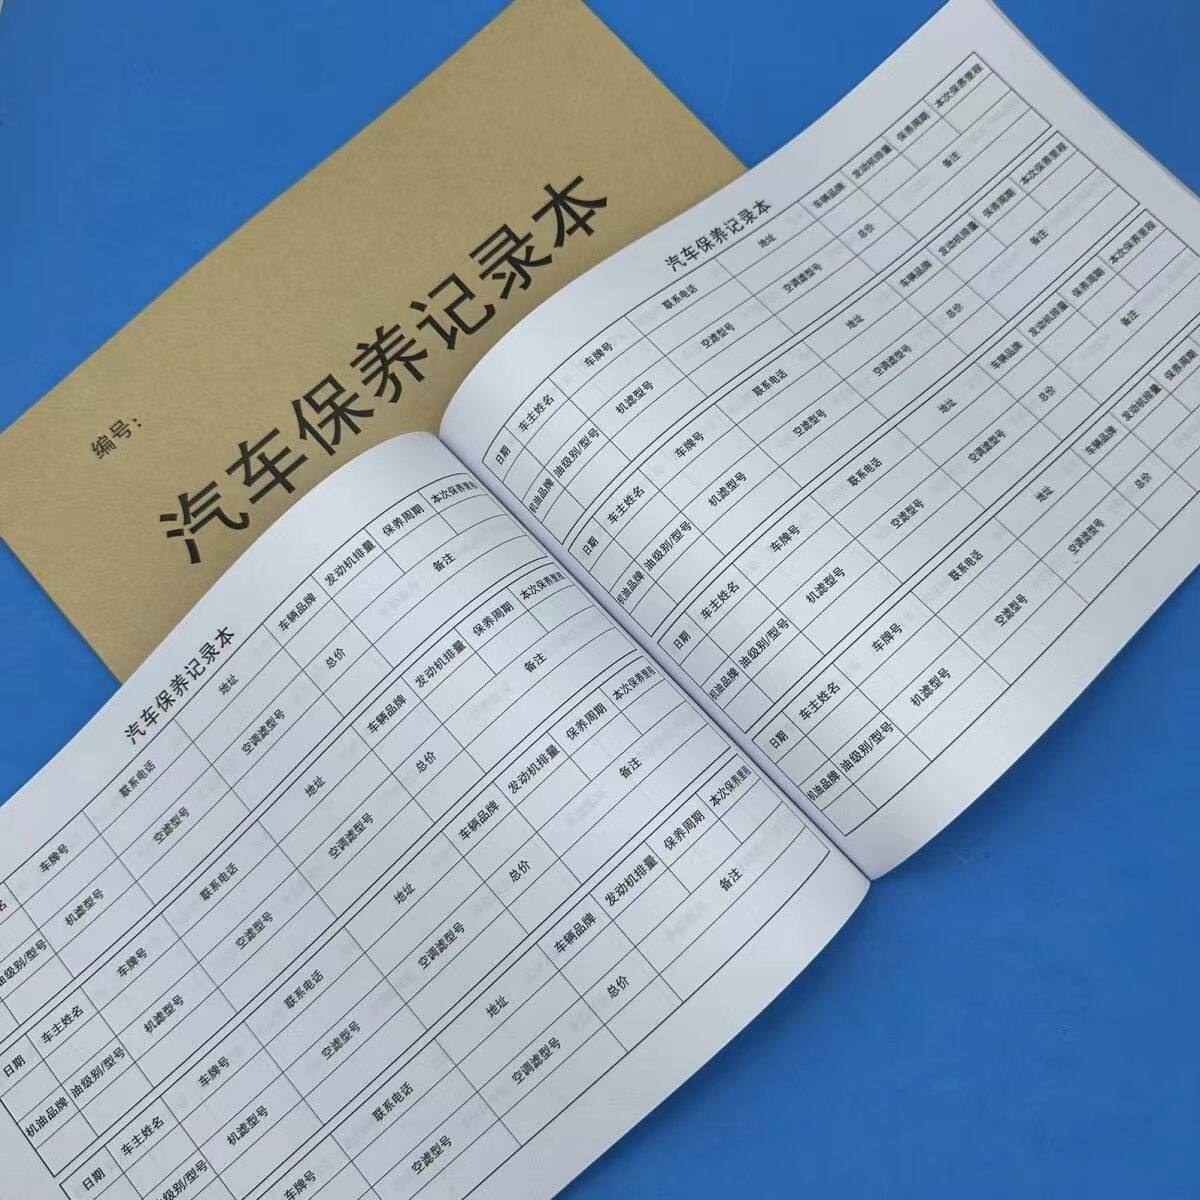 编号:
汽车保养记录本
汽车保养记录本
名 车牌号 联系电话 地址 车辆品牌 发动机排量 保养周期 本次保养里程
油级别/型号 机滤型号 空滤型号 空调滤型号 总价 备注
日期 车主姓名 车牌号 联系电话 地址 车辆品牌 发动机排量 保养周期 本次保养里程
机油品牌 油级别/型号 机滤型号 空滤型号 空调滤型号 总价 备注
日期 车主姓名 车牌号 联系电话 地址 车辆品牌 发动机排量 保养周期 本次保养里程
油级别/型号 机滤型号 空滤型号 空调滤型号 总价 备注
车牌号 联系电话 地址 车辆品牌 发动机排量 保养周期 本次保养里程
空滤型号 空调滤型号 总价 备注
汽车保养记录本
日期 车主姓名 车牌号 联系电话 地址 车辆品牌 发动机排量 保养周期 本次保养里程
机油品牌 油级别/型号 机滤型号 空滤型号 空调滤型号 总价 备注
日期 车主姓名 车牌号 联系电话 地址 车辆品牌 发动机排量 保养周期 本次保养里程
机油品牌 油级别/型号 机滤型号 空滤型号 空调滤型号 总价 备注
日期 车主姓名 车牌号 联系电话 地址 车辆品牌 发动机排量 保养周期 本次保养里程
机油品牌 油级别/型号 机滤型号 空滤型号 空调滤型号 总价 备注
日期 车主姓名 车牌号 联系电话 地址 车辆品牌 发动机排量 保养周期
机油品牌 油级别/型号 机滤型号 空滤型号 空调滤型号 总价